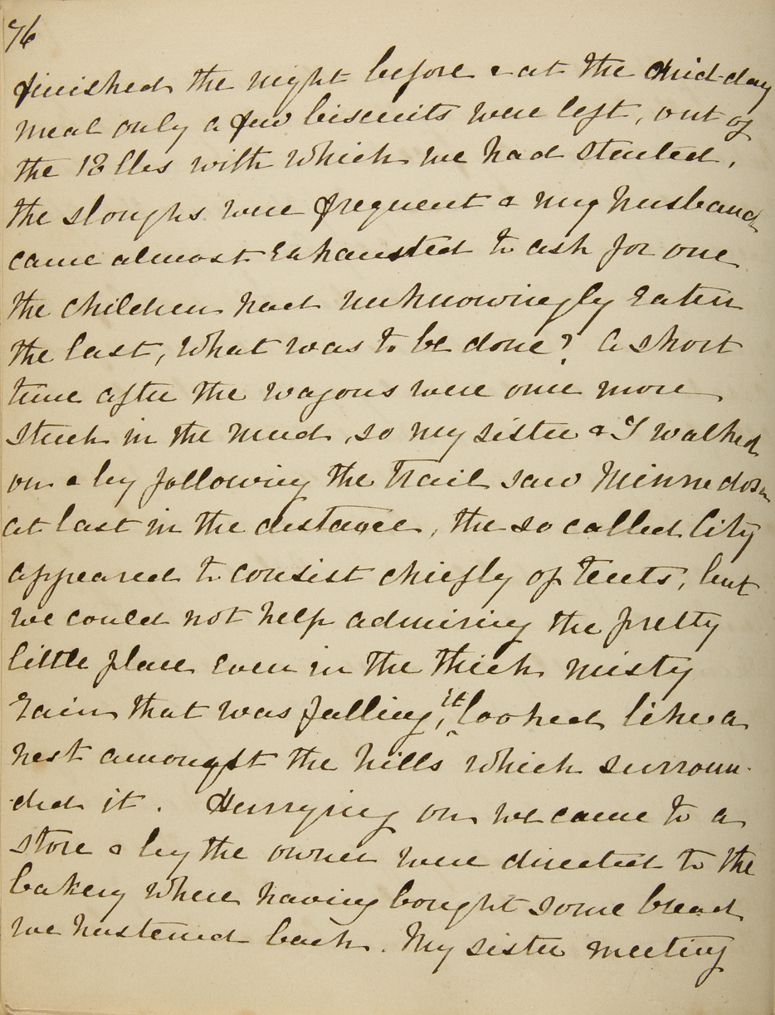 76
finished the night before & at the mid-day
meal only a few biscuits were left, out of
the 18 lbs with which we had started,
the sloughs were frequent & my husband
came almost exhausted to ask for one
the children had unknowingly eaten
the last, what was to be done? A short
time after the wagons were once more
stuck in the mud, so my sister & I walked
on & by following the trail saw Minnedosa
at last in the distance, the so called City
appeared to consist chiefly of tents, but
we could not help admiring the pretty
little place even in the thick misty
rain that was falling, it looked like a
nest amongst the hills which surroun-
-ded it. Hurrying on we came to a
store & by the owner were directed to the
bakery where having bought some bread
we hastened back. My sister meeting